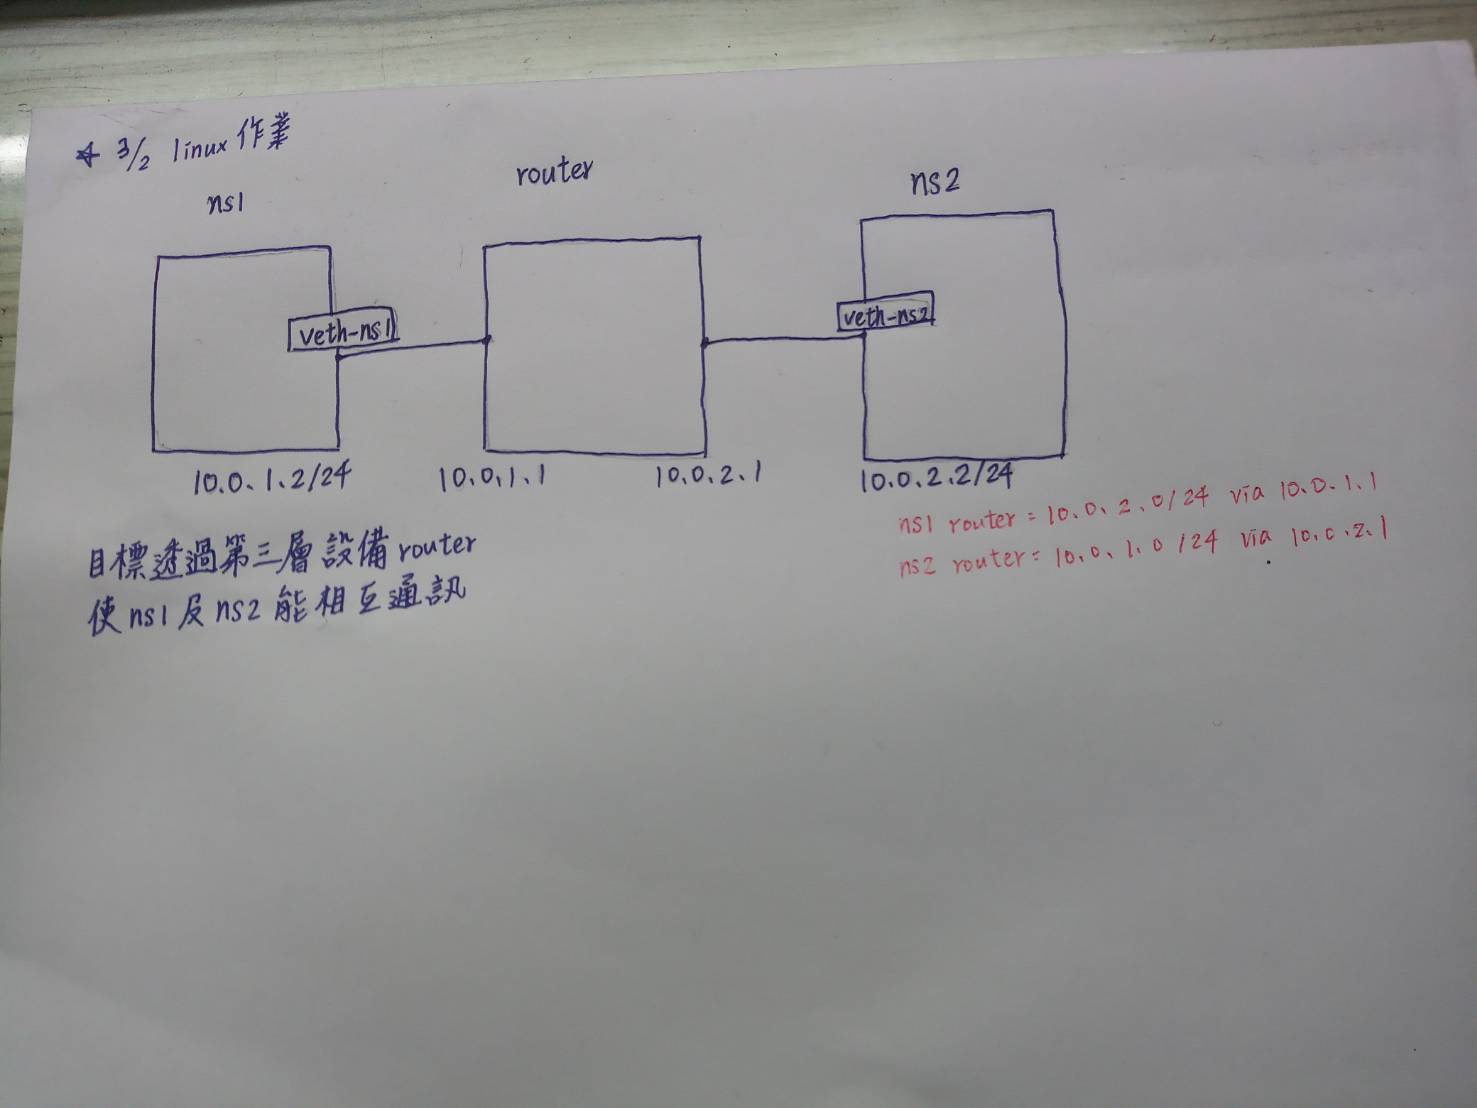 ★ 3/2 linux 作業
ns1
router
ns2
veth-ns1
veth-ns2
10.0.1.2/24
10.0.1.1
10.0.2.1
10.0.2.2/24
ns1 router = 10.0.2.0/24 via 10.0.1.1
ns2 router = 10.0.1.0/24 via 10.0.2.1
目標透過第三層設備router
使ns1及ns2能相互通訊